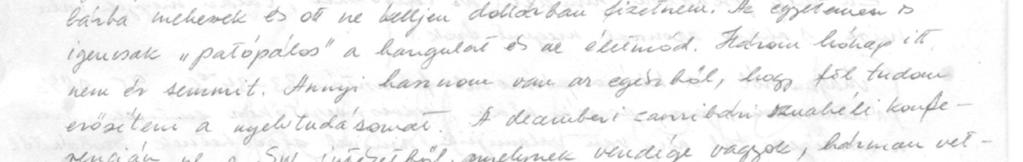 bárba mehessek és ott ne kelljen dollárban fizetnem. Az egyetemen is
igencsak „patópálos" a hangulat és az életmód. Három hónap itt
nem ér semmit. Annyi hasznom van az egészből, hogy föl tudom
erősíteni a nyelvtudásomat. A decemberi zanzibári szuahéli konfe-
rencián ne a Szu. intézetből, melynek vendége vagyok, hárman vet-